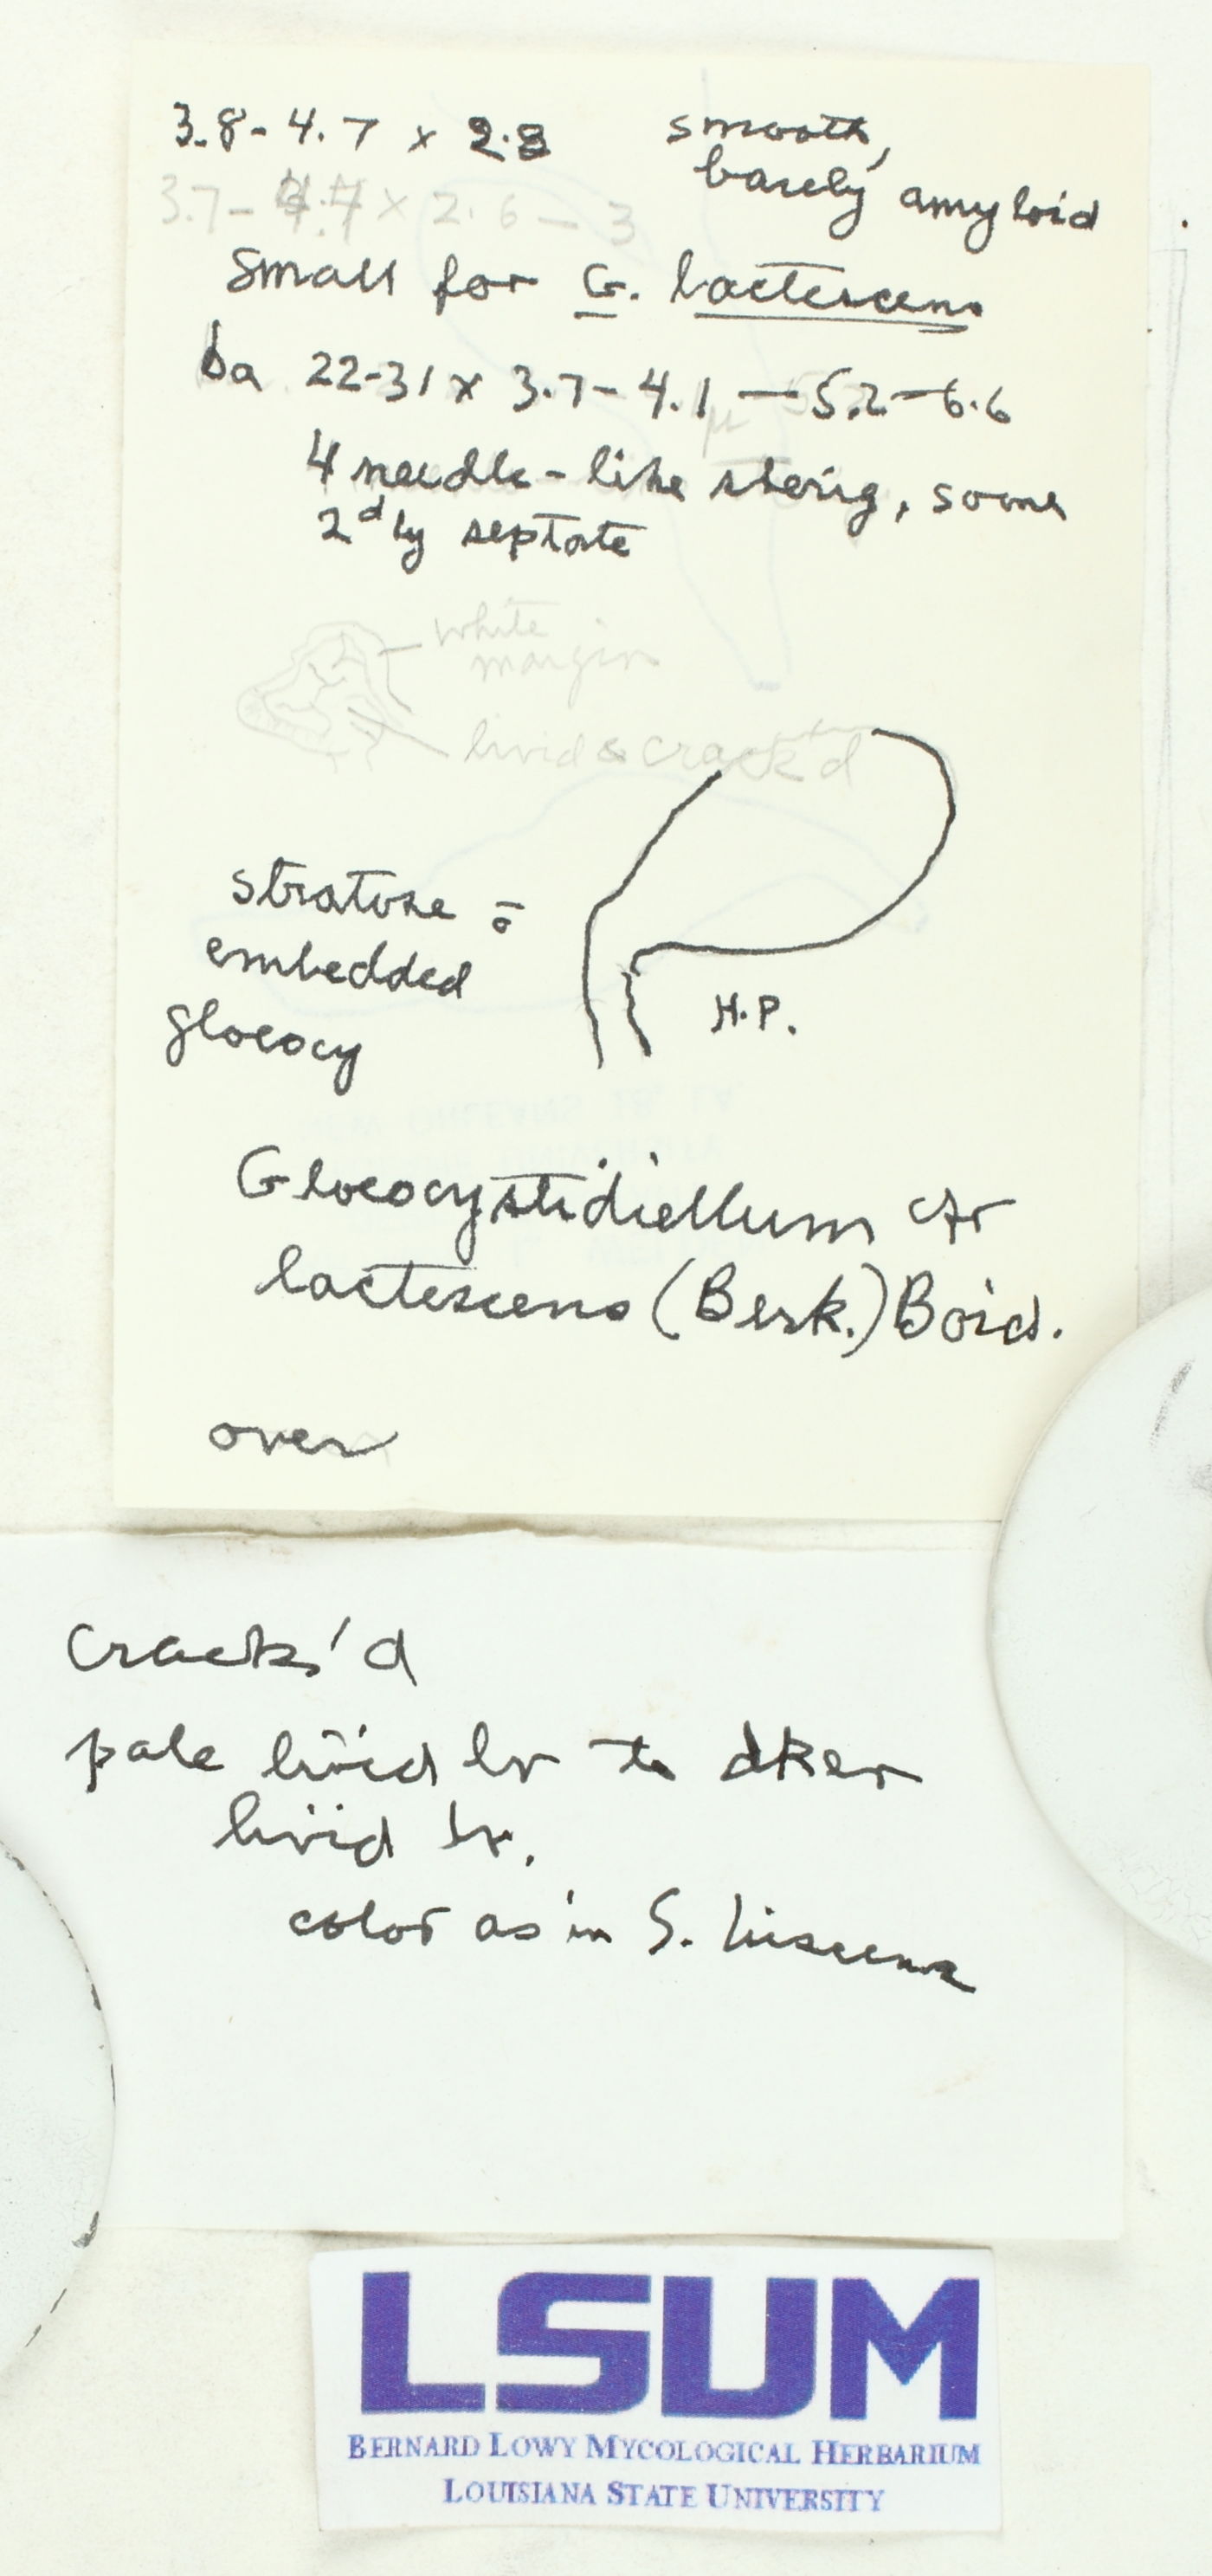 3.8-4.7 x 2.8 smooth,
barely amyloid
3.7-4.4 x 2.6-3
small for G. lactescens
ba 22-31 x 3.7-4.1 — 5.2-6.6
4 needle-like sterig, some
2dly septate
white
margin
livid & crack'd
stratose
embedded
gloeocy
H.P.
Gloeocystidiellum
lactescens (Berk.) Boid.
over
crack'd
pale livid br to dker
livid br.
color as in S.
LSUM
BERNARD LOWY MYCOLOGICAL HERBARIUM
LOUISIANA STATE UNIVERSITY